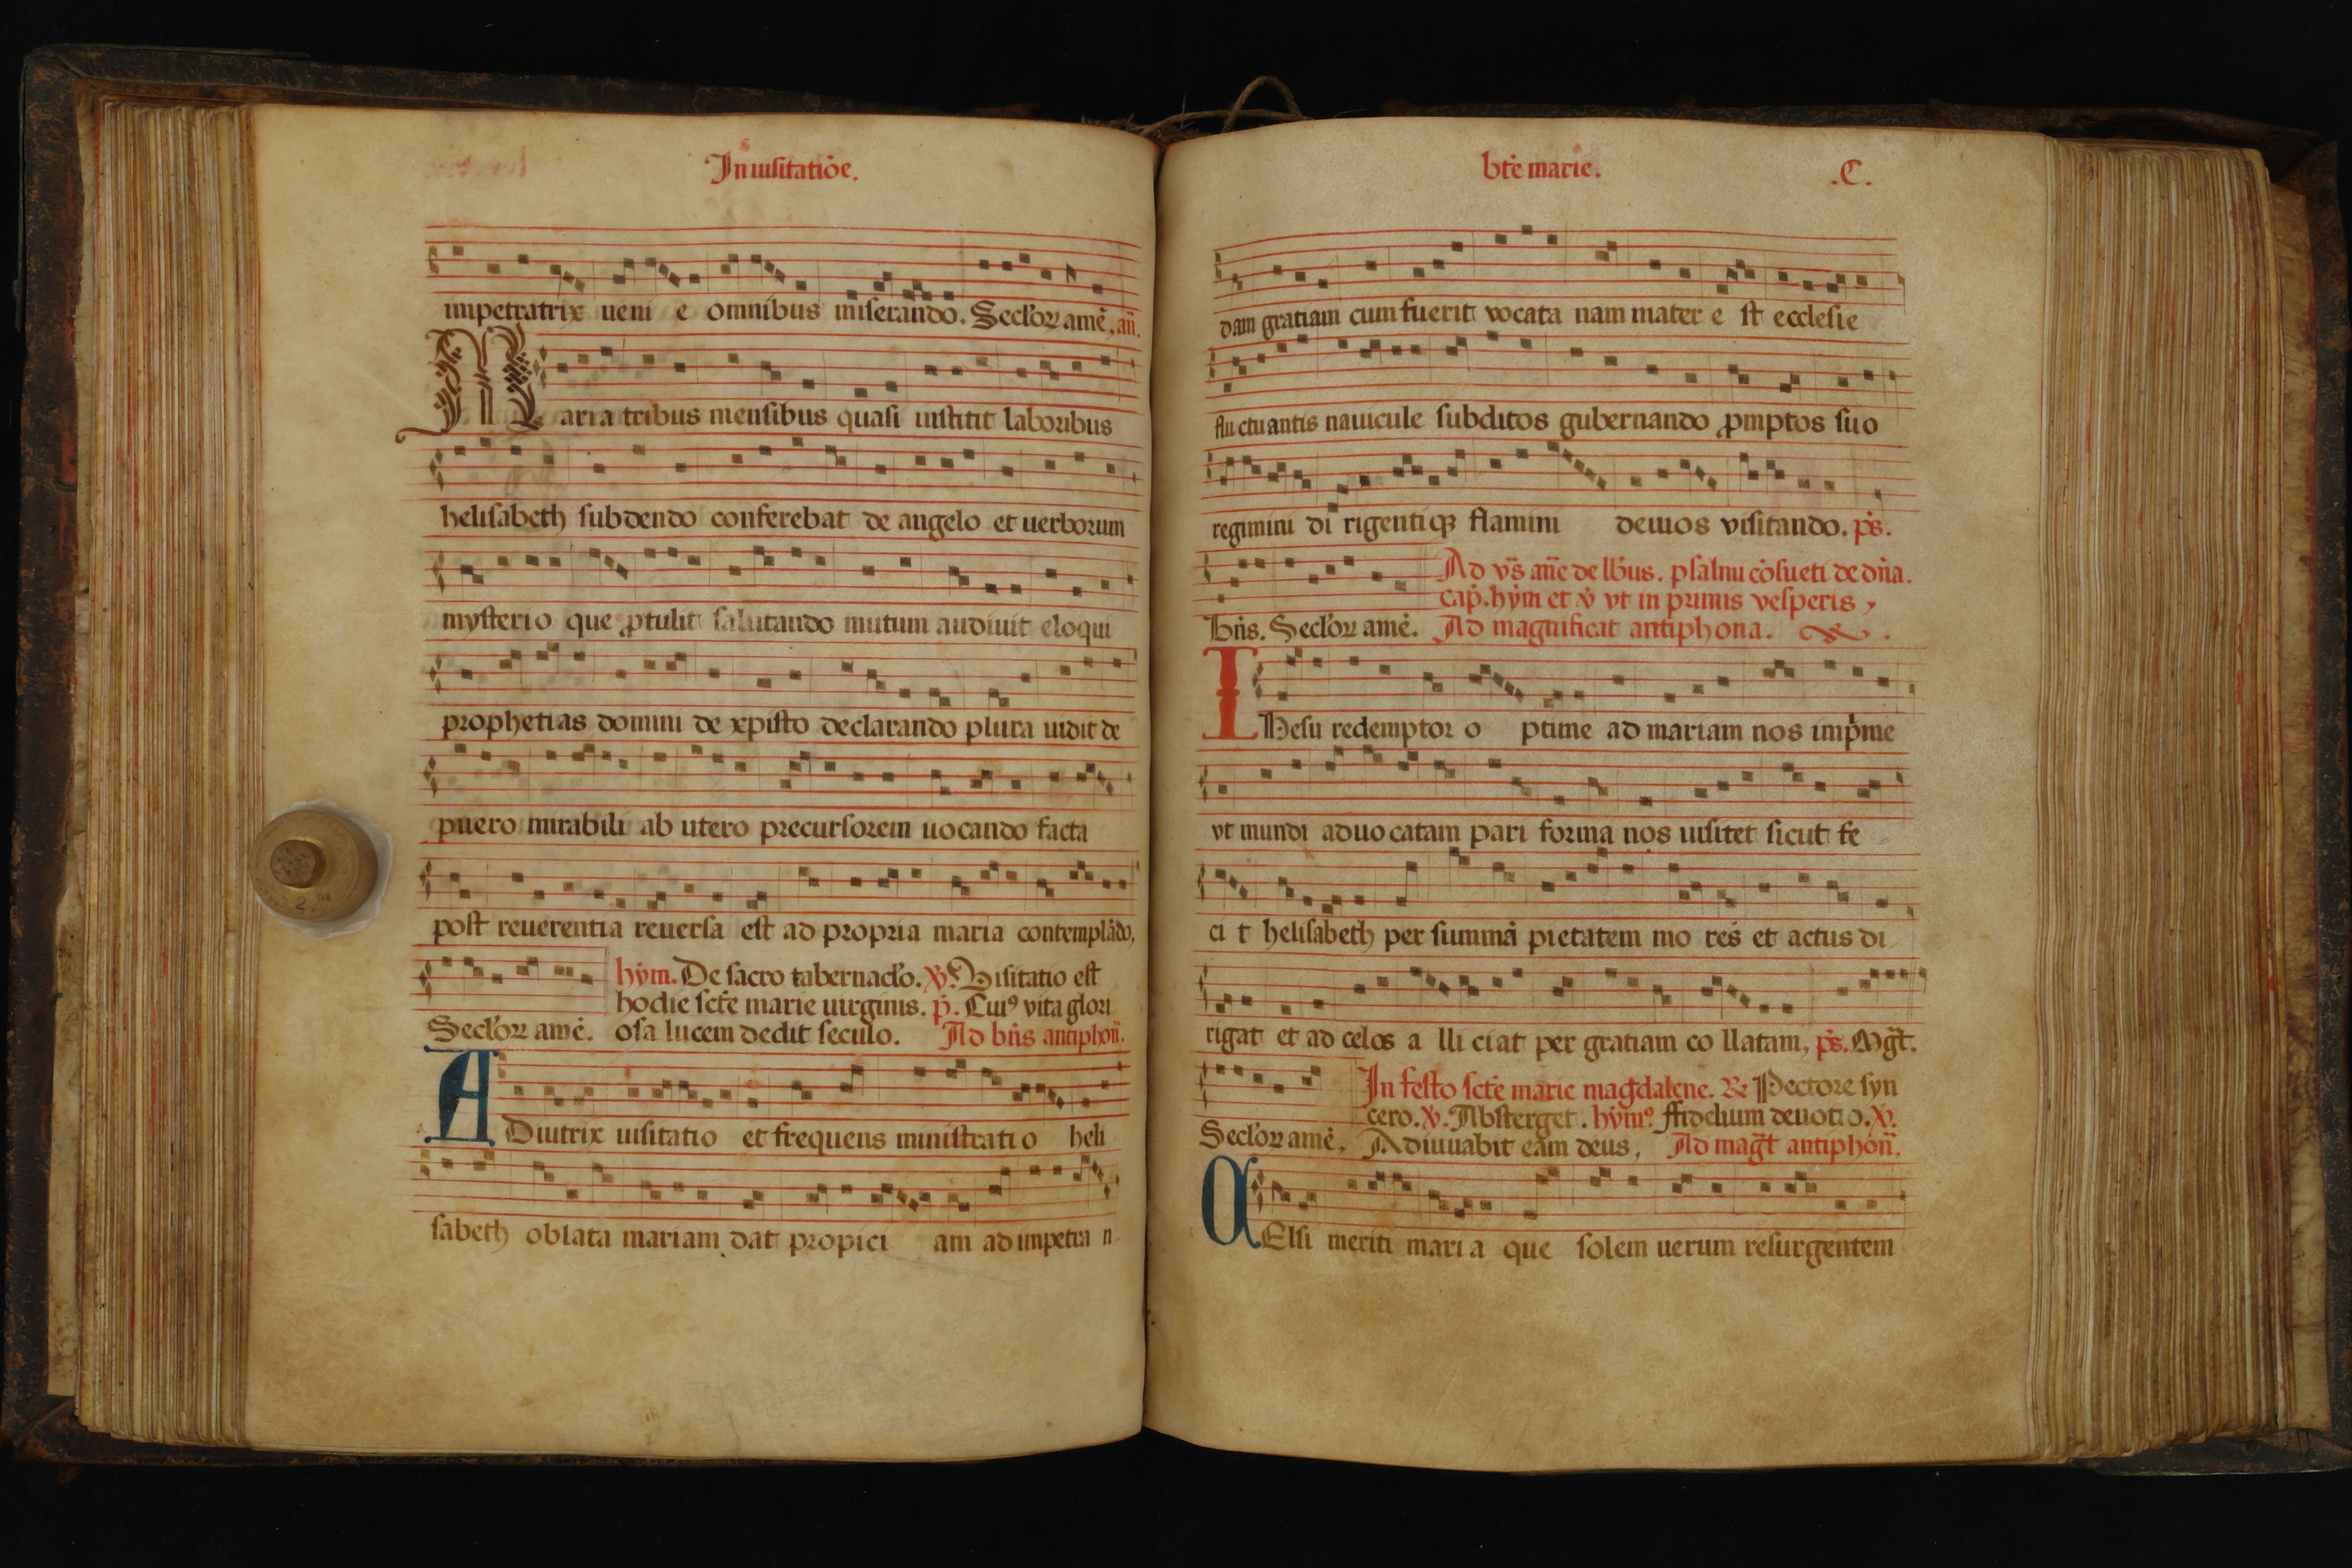 In uisitatiōe.
impetratrix ueni e omnibus miserando. Secl'oꝝ amē. añ.
Maria tribus mensibus quasi institit laboribus
helisabeth subdendo conferebat de angelo et uerborum
mysterio que ꝓtulit salutando mutum audiuit eloqui
prophetias domini de xpisto declarando plura uidit de
puero mirabili ab utero precursorem uocando facta
post reuerentia reuersa est ad propria maria contemplādo.
hym̄. De sacro tabernacl'o. ꝟ. Visitatio est
hodie sct̄e marie uirginis. p̄. Cuiꝰ vita glori
Secl'oꝝ amē. osa lucem dedit seculo. Ad bn̄s antiphoñ.
ADiutrix uisitatio et frequens ministrati o heli
sabeth oblata mariam dat propici am ad impetra n
bt̄e marie. .C.
dam gratiam cum fuerit vocata nam mater e st ecclesie
fluctuantis nauicule subditos gubernando ꝓmptos suo
regimini di rigentiqꝫ flamini deuios visitando. ps̄.
Ad vs̄ an̄e de llb̄us. psalmi cōsueti de dn̄a.
cap̄. hym̄ et ꝟ vt in primis vesperis,
Bn̄s. Secl'oꝝ amē. Ad magnificat antiphona.
IHesu redemptor o ptime ad mariam nos imp̄me
vt mundi aduocatam pari forma nos uisitet sicut fe
ci t helisabeth per summā pietatem mo res et actus di
rigat et ad celos a lli ciat per gratiam co llatam, ps̄. Mgt̄.
In festo scte marie magdalene. ℞ Pectore syn
cero. ꝟ. Absterget. hym̄º. ffidelium deuoti o. ꝟ.
Secl'oꝝ amē. Adiuuabit eam deus, Ad magt̄ antiphoñ.
OElsi meriti mari a que solem uerum resurgentem